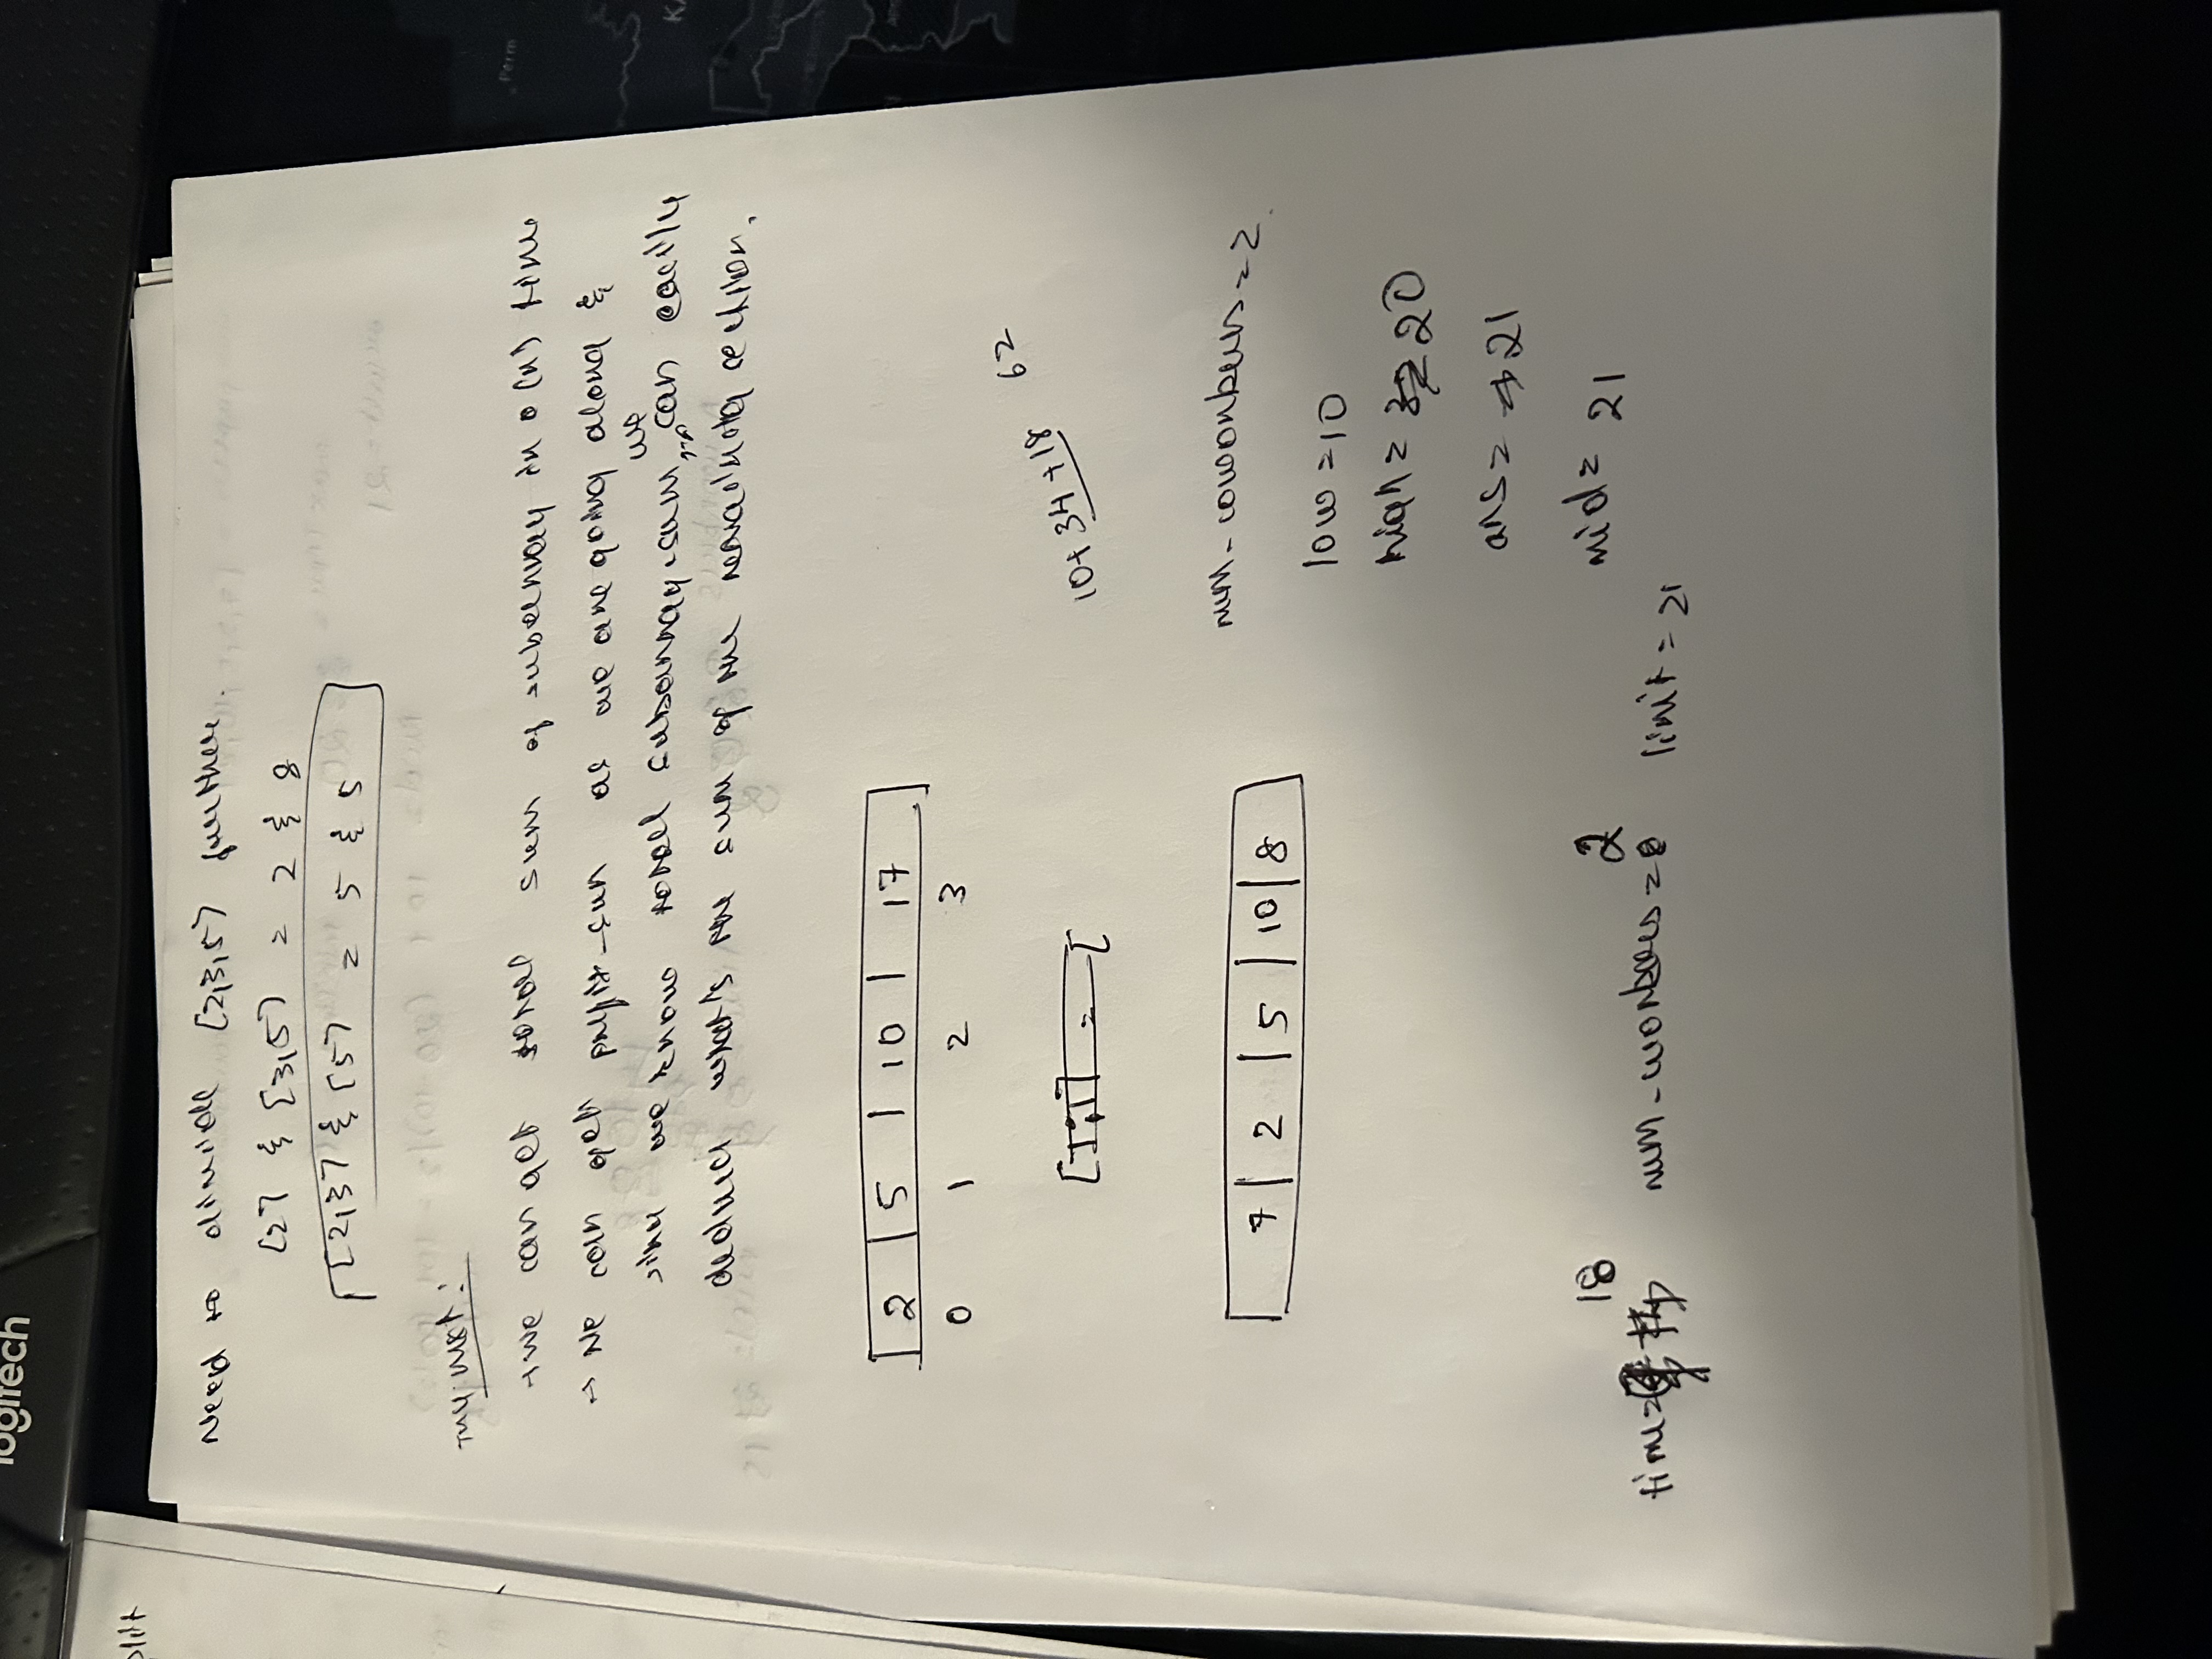 logitech
split
Need to divide [2,3,5] further.
[2] & [3,5] = 2 & 8
[2,3] & [5] = 5 & 5
→ we can get total sum of subarray in O(n) time
→ We can get prefix-sum as we are going along &
since we know total subarray-sum, we can easily
deduce what's the sum of the remaining section.
2 | 5 | 10 | 17
0 1 2 3
10+34+18 62
7 | 2 | 5 | 10 | 8
num-coworkers = 2
low = 10
high = 20
ans = 21
mid = 21
time = 18 num-workers = 2 limit = 21
Perm